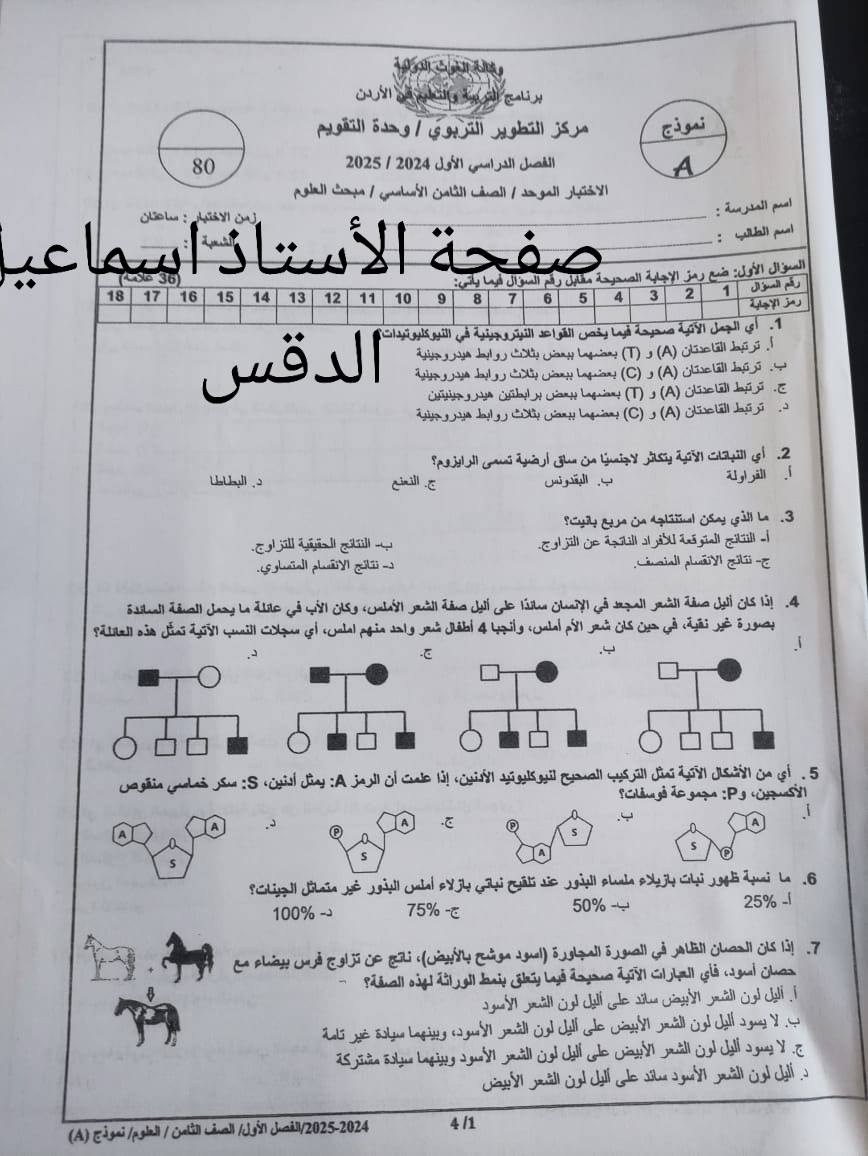 وكالة الغوث الدولية
برنامج التربية والتعليم في الأردن
مركز التطوير التربوي / وحدة التقويم
نموذج
A
80
الفصل الدراسي الأول 2024 / 2025
الاختبار الموحد / الصف الثامن الأساسي / مبحث العلوم
زمن الاختبار : ساعتان
اسم المدرسة :
اسم الطالب :
الشعبة :
صفحة الأستاذ اسماعيل
الدقس
السؤال الأول: ضع رمز الإجابة الصحيحة مقابل رقم السؤال فيما يأتي:
(36 علامة)
رقم السؤال 1 2 3 4 5 6 7 8 9 10 11 12 13 14 15 16 17 18
رمز الإجابة
1. أي الجمل الآتية صحيحة فيما يخص القواعد النيتروجينية في النيوكليوتيدات؟
أ. ترتبط القاعدتان (A) و (T) ببعضهما ببعض بثلاث روابط هيدروجينية
ب. ترتبط القاعدتان (A) و (C) ببعضهما ببعض بثلاث روابط هيدروجينية
ج. ترتبط القاعدتان (A) و (T) ببعضهما ببعض برابطتين هيدروجينيتين
د. ترتبط القاعدتان (A) و (C) ببعضهما ببعض بثلاث روابط هيدروجينية
2. أي النباتات الآتية يتكاثر لاجنسيًا من ساق أرضية تسمى الرايزوم؟
أ. الفراولة
ب. البقدونس
ج. النعنع
د. البطاطا
3. ما الذي يمكن استنتاجه من مربع بانيت؟
أ- النتائج المتوقعة للأفراد الناتجة عن التزاوج.
ب- النتائج الحقيقية للتزاوج.
ج- نتائج الانقسام المنصف.
د- نتائج الانقسام المتساوي.
4. إذا كان أليل صفة الشعر المجعد في الإنسان سائدًا على أليل صفة الشعر الأملس، وكان الأب في عائلة ما يحمل الصفة السائدة
بصورة غير نقية، في حين كان شعر الأم أملس، وأنجبا 4 أطفال شعر واحد منهم أملس، أي سجلات النسب الآتية تمثل هذه العائلة؟
أ.
ب.
ج.
د.
5. أي من الأشكال الآتية تمثل التركيب الصحيح لنيوكليوتيد الأدنين، إذا علمت أن الرمز A: يمثل أدنين، S: سكر خماسي منقوص
الأكسجين، وP: مجموعة فوسفات؟
أ.
A
S
P
ب.
P
S
A
ج.
P
A
S
د.
A
A
S
6. ما نسبة ظهور نبات بازيلاء ملساء البذور عند تلقيح نباتي بازلاء أملس البذور غير متماثل الجينات؟
أ- 25%
ب- 50%
ج- 75%
د- 100%
7. إذا كان الحصان الظاهر في الصورة المجاورة (أسود مموج بالأبيض)، نتج عن تزاوج فرس بيضاء مع
حصان أسود، فأي العبارات الآتية صحيحة فيما يتعلق بنمط الوراثة لهذه الصفة؟
أ. أليل لون الشعر الأبيض سائد على أليل لون الشعر الأسود
ب. لا يسود أليل لون الشعر الأبيض على أليل لون الشعر الأسود، وبينهما سيادة غير تامة
ج. لا يسود أليل لون الشعر الأبيض على أليل لون الشعر الأسود وبينهما سيادة مشتركة
د. أليل لون الشعر الأسود سائد على أليل لون الشعر الأبيض
2024-2025/الفصل الأول/ الصف الثامن / العلوم/ نموذج (A)
4 /1